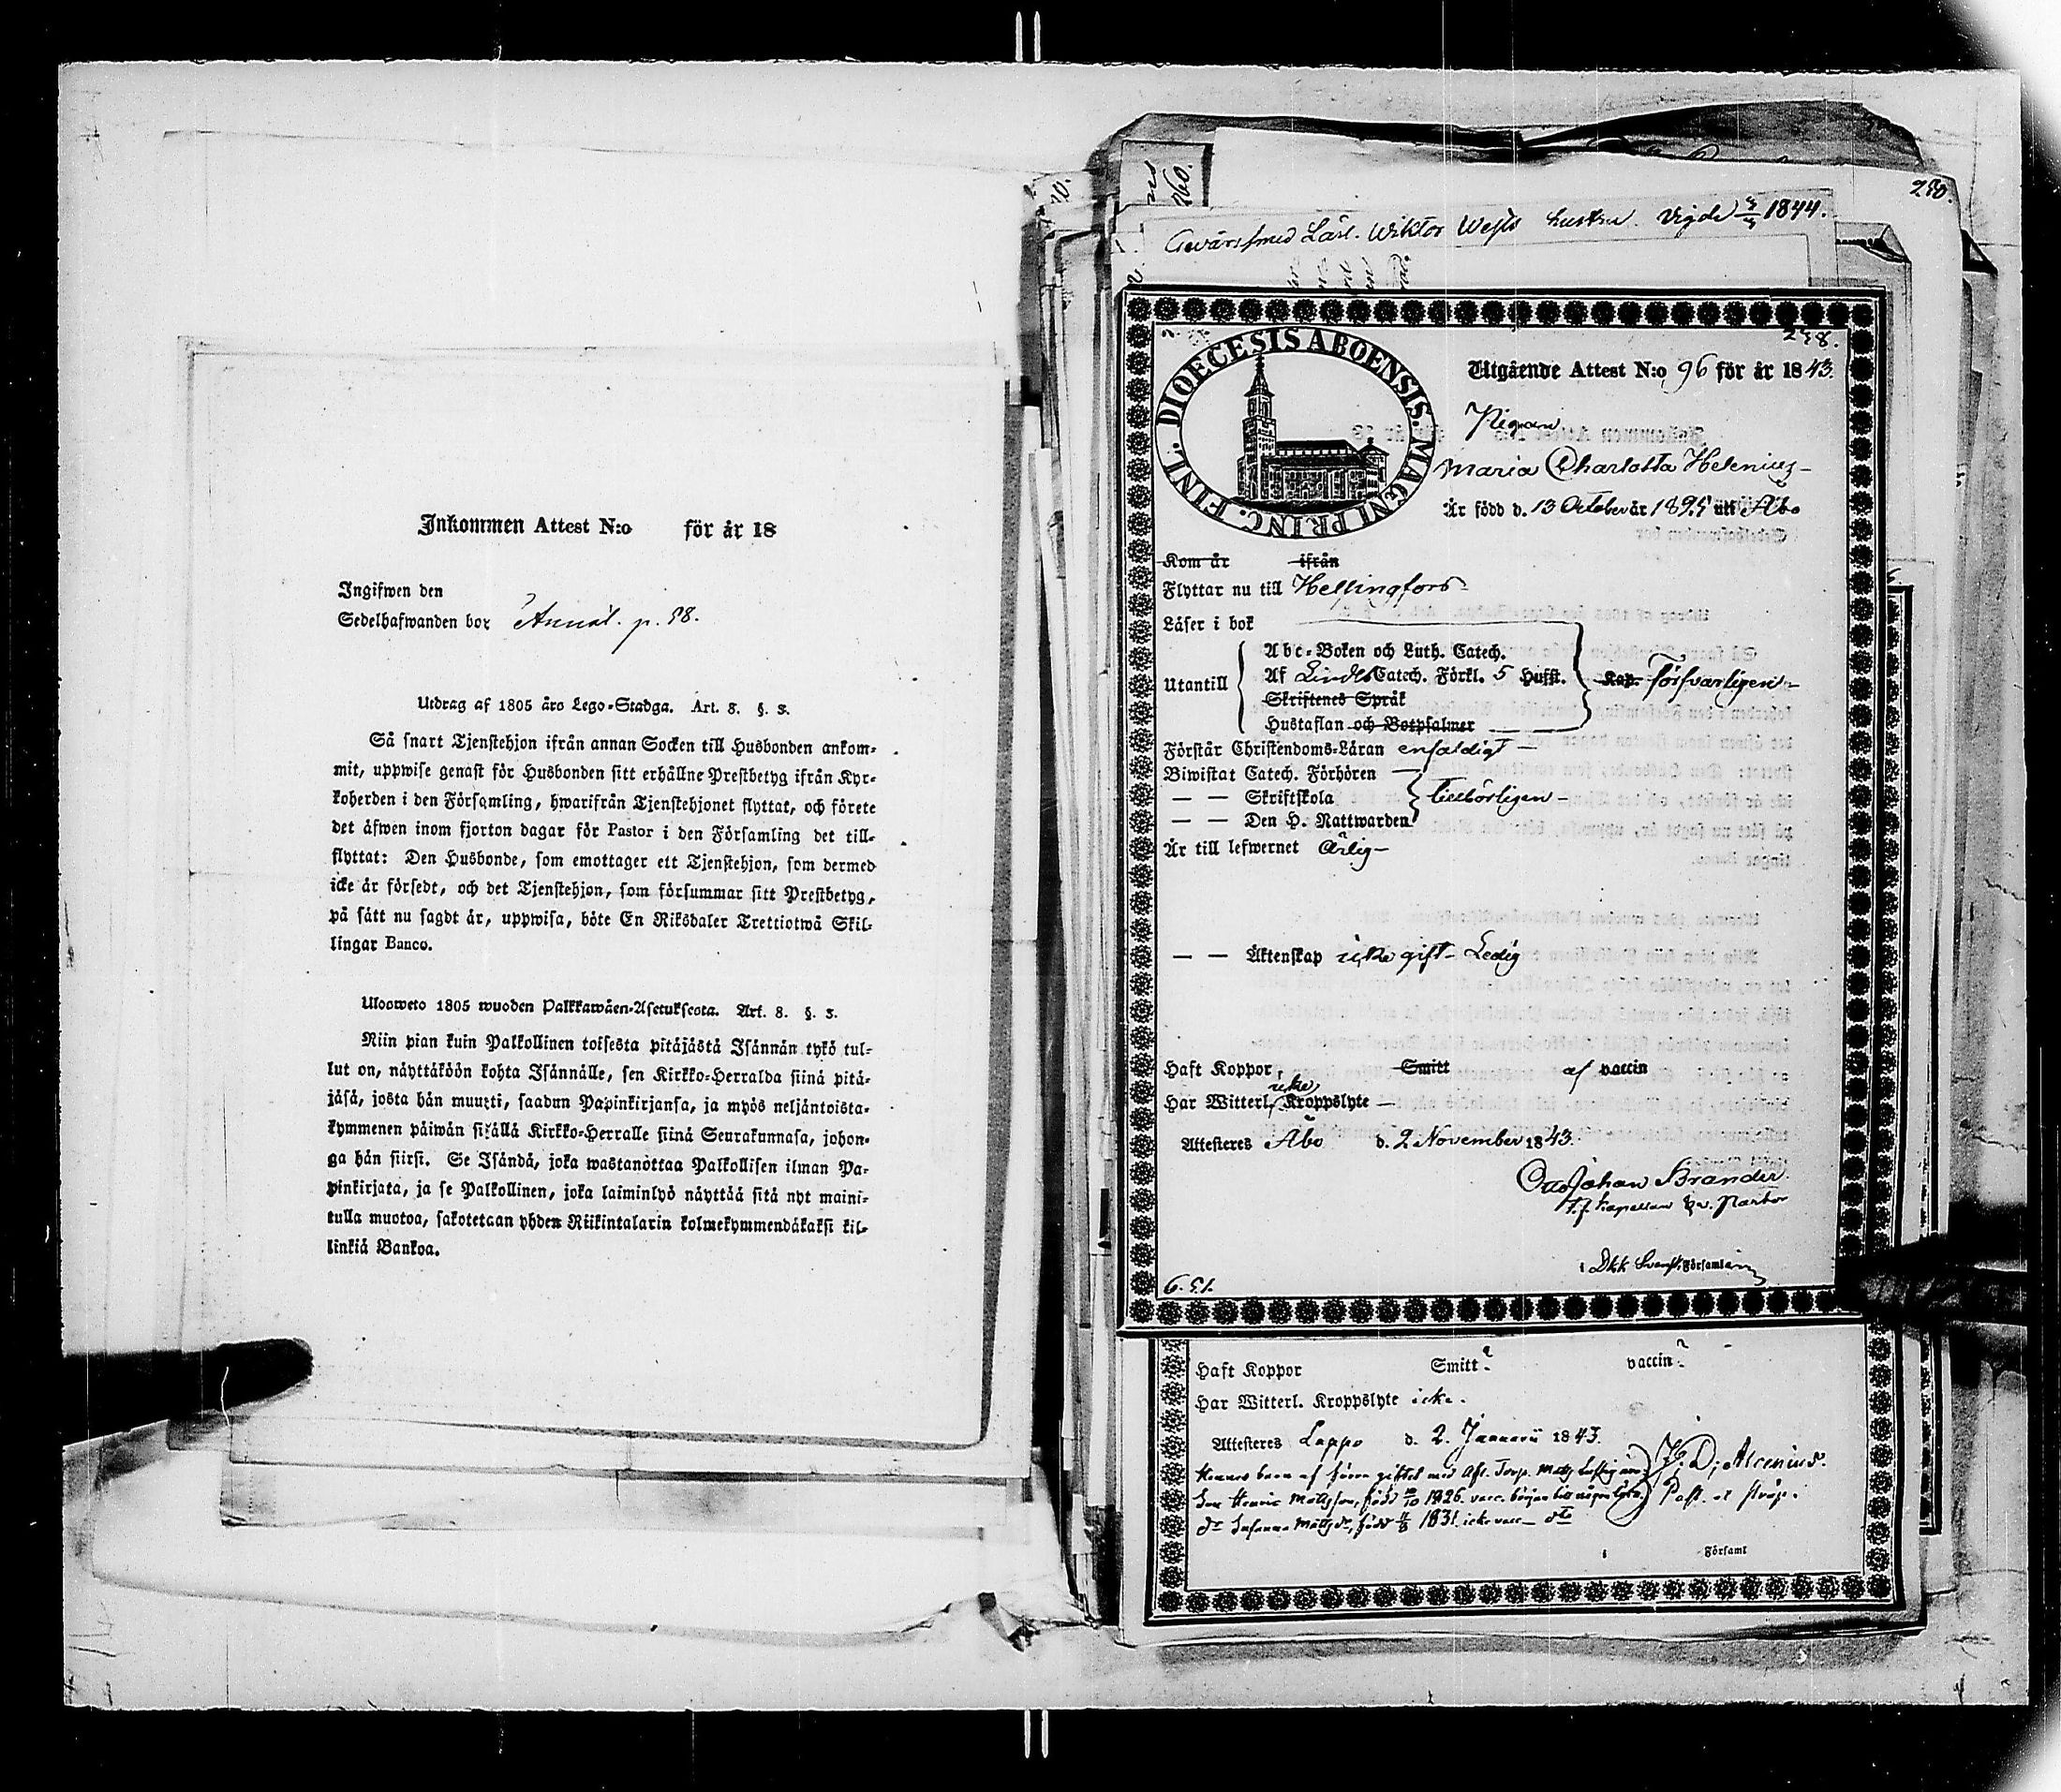 Inkommen Attest N:o för år 18
Ingifwen den
Sedelhafwanden bor Annäl. p. 98.
Utdrag af 1805 års Lego-Stadga. Art. 8. §. 3.
Så snart Tjenstehjon ifrån annan Socken till Husbonden ankom-
mit, uppwise genast för Husbonden sitt erhållne Prestbetyg ifrån Kyr-
koherden i den Församling, hwarifrån Tjenstehjonet flyttat, och förete
det äfwen inom fjorton dagar för Pastor i den Församling det till-
flyttat: Den Husbonde, som emottager ett Tjenstehjon, som dermed
icke är försedt, och det Tjenstehjon, som försummar sitt Prestbetyg,
på sätt nu sagdt är, uppwisa, böte En Riksdaler Trettiotwå Skil-
lingar Banco.
Ulosweto 1805 wuoden Palkkawäen-Asetuksesta. Art. 8. §. 3.
Niin pian kuin Palkollinen toisesta pitäjästä Isännän tykö tul-
lut on, näyttäköön kohta Isännälle, sen Kirkko-Herralda siinä pitä-
jäsä, josta hän muutti, saadun Papinkirjansa, ja myös neljäntoista-
kymmenen päiwän sisällä Kirkko-Herralle siinä Seurakunnasa, johon-
ga hän siirsi. Se Isändä, joka wastanottaa Palkollisen ilman Pa-
pinkirjata, ja se Palkollinen, joka laiminlyö näyttää sitä nyt maini-
tulla muotoa, sakotetaan yhden Riikintalarin kolmekymmendäkaksi kil-
linkiä Bankoa.
230.
Lärl. Wiktor hustru. Vigde 1844.
238.
DIOECESIS ABOENSIS. MAGNI PRINC. FINL.
Utgående Attest N:o 96 för år 1843.
Pigan
Maria Charlotta Helenius
Är född d. 13 October år 1895 uti Åbo
Kom år ifrån
Flyttar nu till Helsingfors
Läser i bok
Utantill
Abc-Boken och Luth. Catech.
Af Lindbl Catech. Förkl. 5 Hufst.
Skriftenes Språk
Hustaflan och Botpsalmer
Kap. Försvarligen
Förstår Christendoms-Läran enfaldigt
Biwistat Catech. Förhören
— — Skriftskola tillbörligen
— — Den H. Nattwarden
Är till lefwernet Ärlig
— — Äktenskap icke gift - Ledig
Haft Koppor, Smitt af vaccin
icke
Har Witterl. Kroppslyte
Attesteres Åbo d. 2 November 1843.
Otto Johan Brander
t.f. Kapellan Pastor
i Dkk Svenska Församling
6. 51.
Haft Koppor Smitt? vaccin?
Har Witterl. Kroppslyte icke.
Attesteres Lappo d. 2. Januarii 1843.
Hennes barn af förra giftet med Afl. Torp. Matts
J. D. Alcenius.
Son Henric Mattsson, född 1826. vacc.
Past. et
Do Susanna Mattsdr, född 1831. icke vacc — do
i Församl